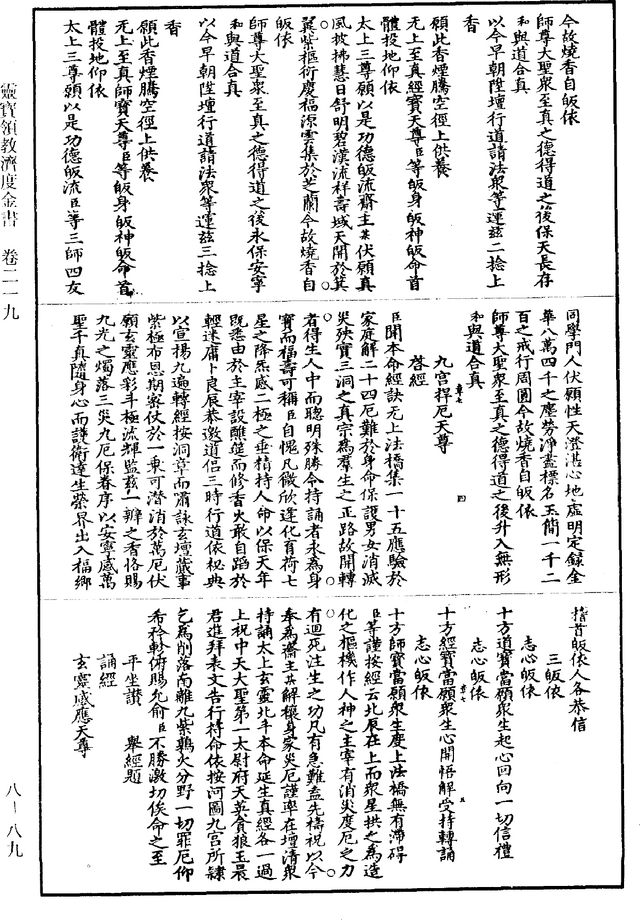 今故燒香自皈依
師尊大聖衆至真之德得道之後保天長存
和與道合真
以今早朝陞壇行道請法衆等運兹二捻上
香
願此香煙騰空徑上供養
无上至真經寶天尊臣等皈身皈神皈命首
體投地仰依
太上三尊願以是功德皈流齋主某伏願真
風披拂慧日舒明碧漢流祥壽域天開於箕
翼紫樞衍慶福源雲集於芝蘭今故燒香自
皈依
師尊大聖衆至真之德得道之後永保安寧
和與道合真
以今早朝陞壇行道請法衆等運兹三捻上
香
願此香煙騰空徑上供養
无上至真師寶天尊臣等皈身皈神皈命首
體投地仰依
太上三尊願以是功德皈流臣等三師四友
同學門人伏願性天澄湛心地虛明定錄金
華八萬四千之塵勞淨盡標名玉簡一千二
百之戒行周圓今故燒香自皈依
師尊大聖衆至真之德得道之後升入無形
和與道合真
九宮捍厄天尊
啓經
臣聞本命經訣无上法橋集一十五應驗於
家庭解二十四厄難於身命保護男女消滅
災殃實三洞之真宗爲羣生之正路故開轉
者得生人中而聰明殊勝令持誦者永爲身
寶而福壽可稱臣自愧凡微欣逢化育荷七
星之降炁感二極之垂精持人命以保天年
既悉由於主宰設醮筵而修香火敢自蹈於
輕迷庸卜良辰恭邀道侶三時行道依科典
以宣揚九遍轉經按洞章而肅詠玄壇蕆事
紫極布恩期睿仗於一乘可潛消於萬厄伏
願玄靈應彩斗極流輝監兹一瓣之香恪賜
九光之燭落三災九厄保眷序以安寧感萬
聖千真隨身心而護衛達生榮界出入福鄉
稽首皈依人各恭信
三皈依
志心皈依
十方道寶當願衆生起心回向一切信禮
志心皈依
十方經寶當願衆生心開悟解受持轉誦
志心皈依
十方師寶當願衆生度上法橋無有滯碍
臣等謹按經云北辰在上而衆星拱之爲造
化之樞機作人神之主宰有消災度厄之力
有迴死注生之功凡有急難盍先禱祝以今
奉爲齋主某解禳身家災厄謹率在壇清衆
持誦太上玄靈北斗本命延生真經各一過
上祝中天大聖第一太尉府天英貪狼玉晨
君進拜表文告行持命依按河圖九宮所隸
乞爲削落南離九紫鶉火分野一切罪厄仰
希矜軫俯賜允俞臣不勝激切俟命之至
平坐讚　舉經題
誦經
玄靈感應天尊
靈寶領教濟度金書　卷二一　九
八－八九